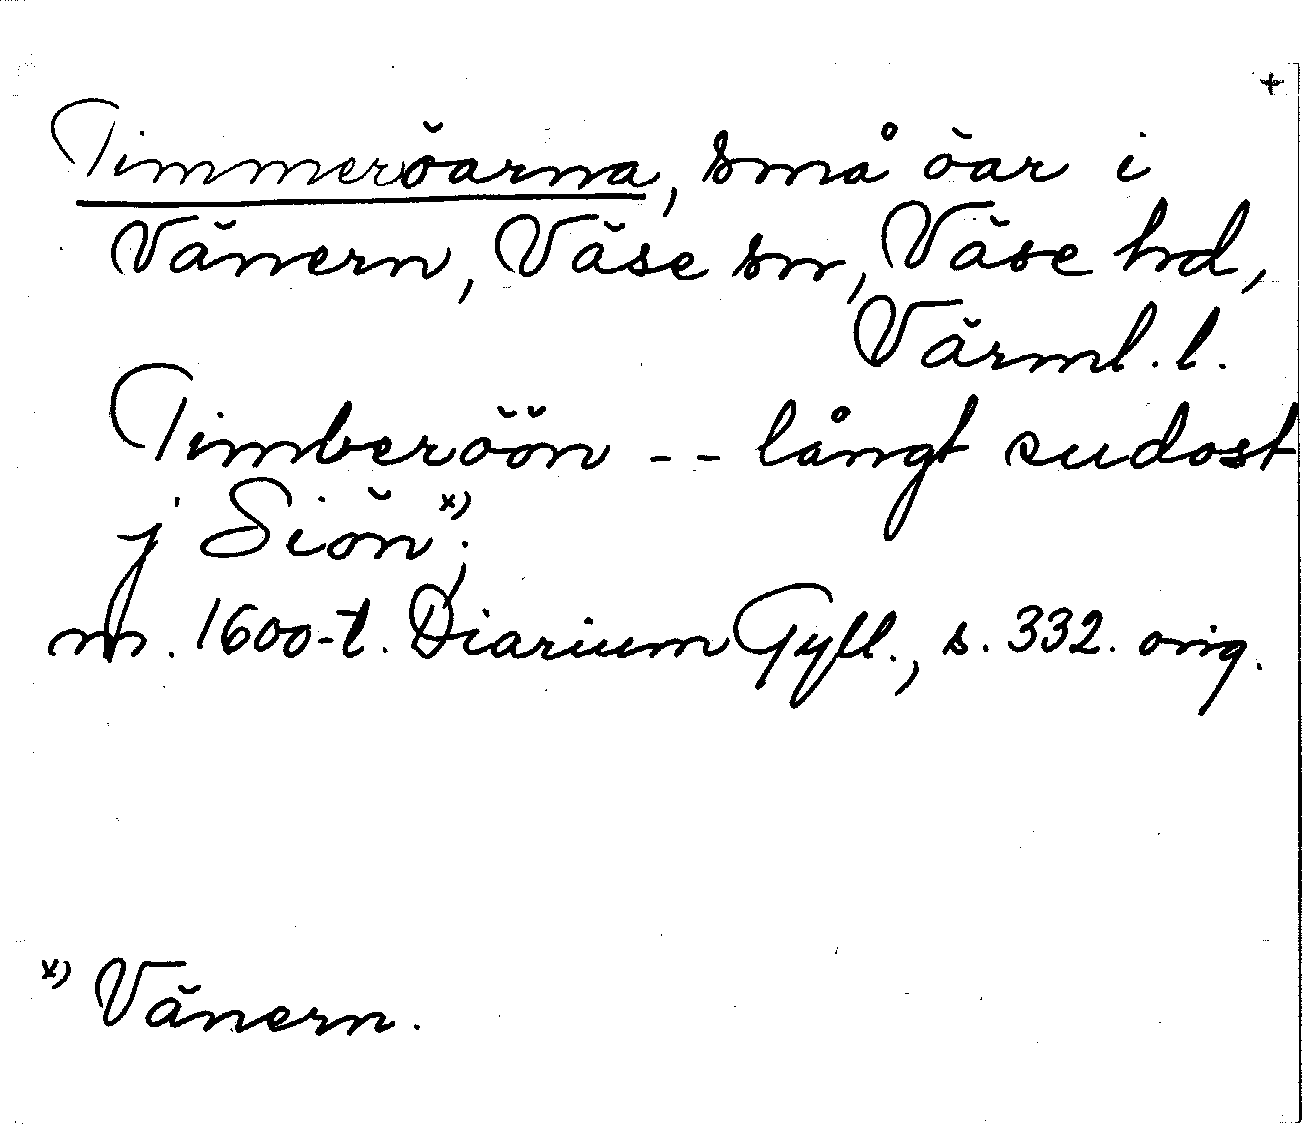 +
Timmeröarna, små öar i
Vänern, Väse sn, Väse hd,
Värml. l.
Timberöön -- långt sudost
j Siön x);
m. 1600-t. Diarium Gyll., s. 332. orig.
x) Vänern.